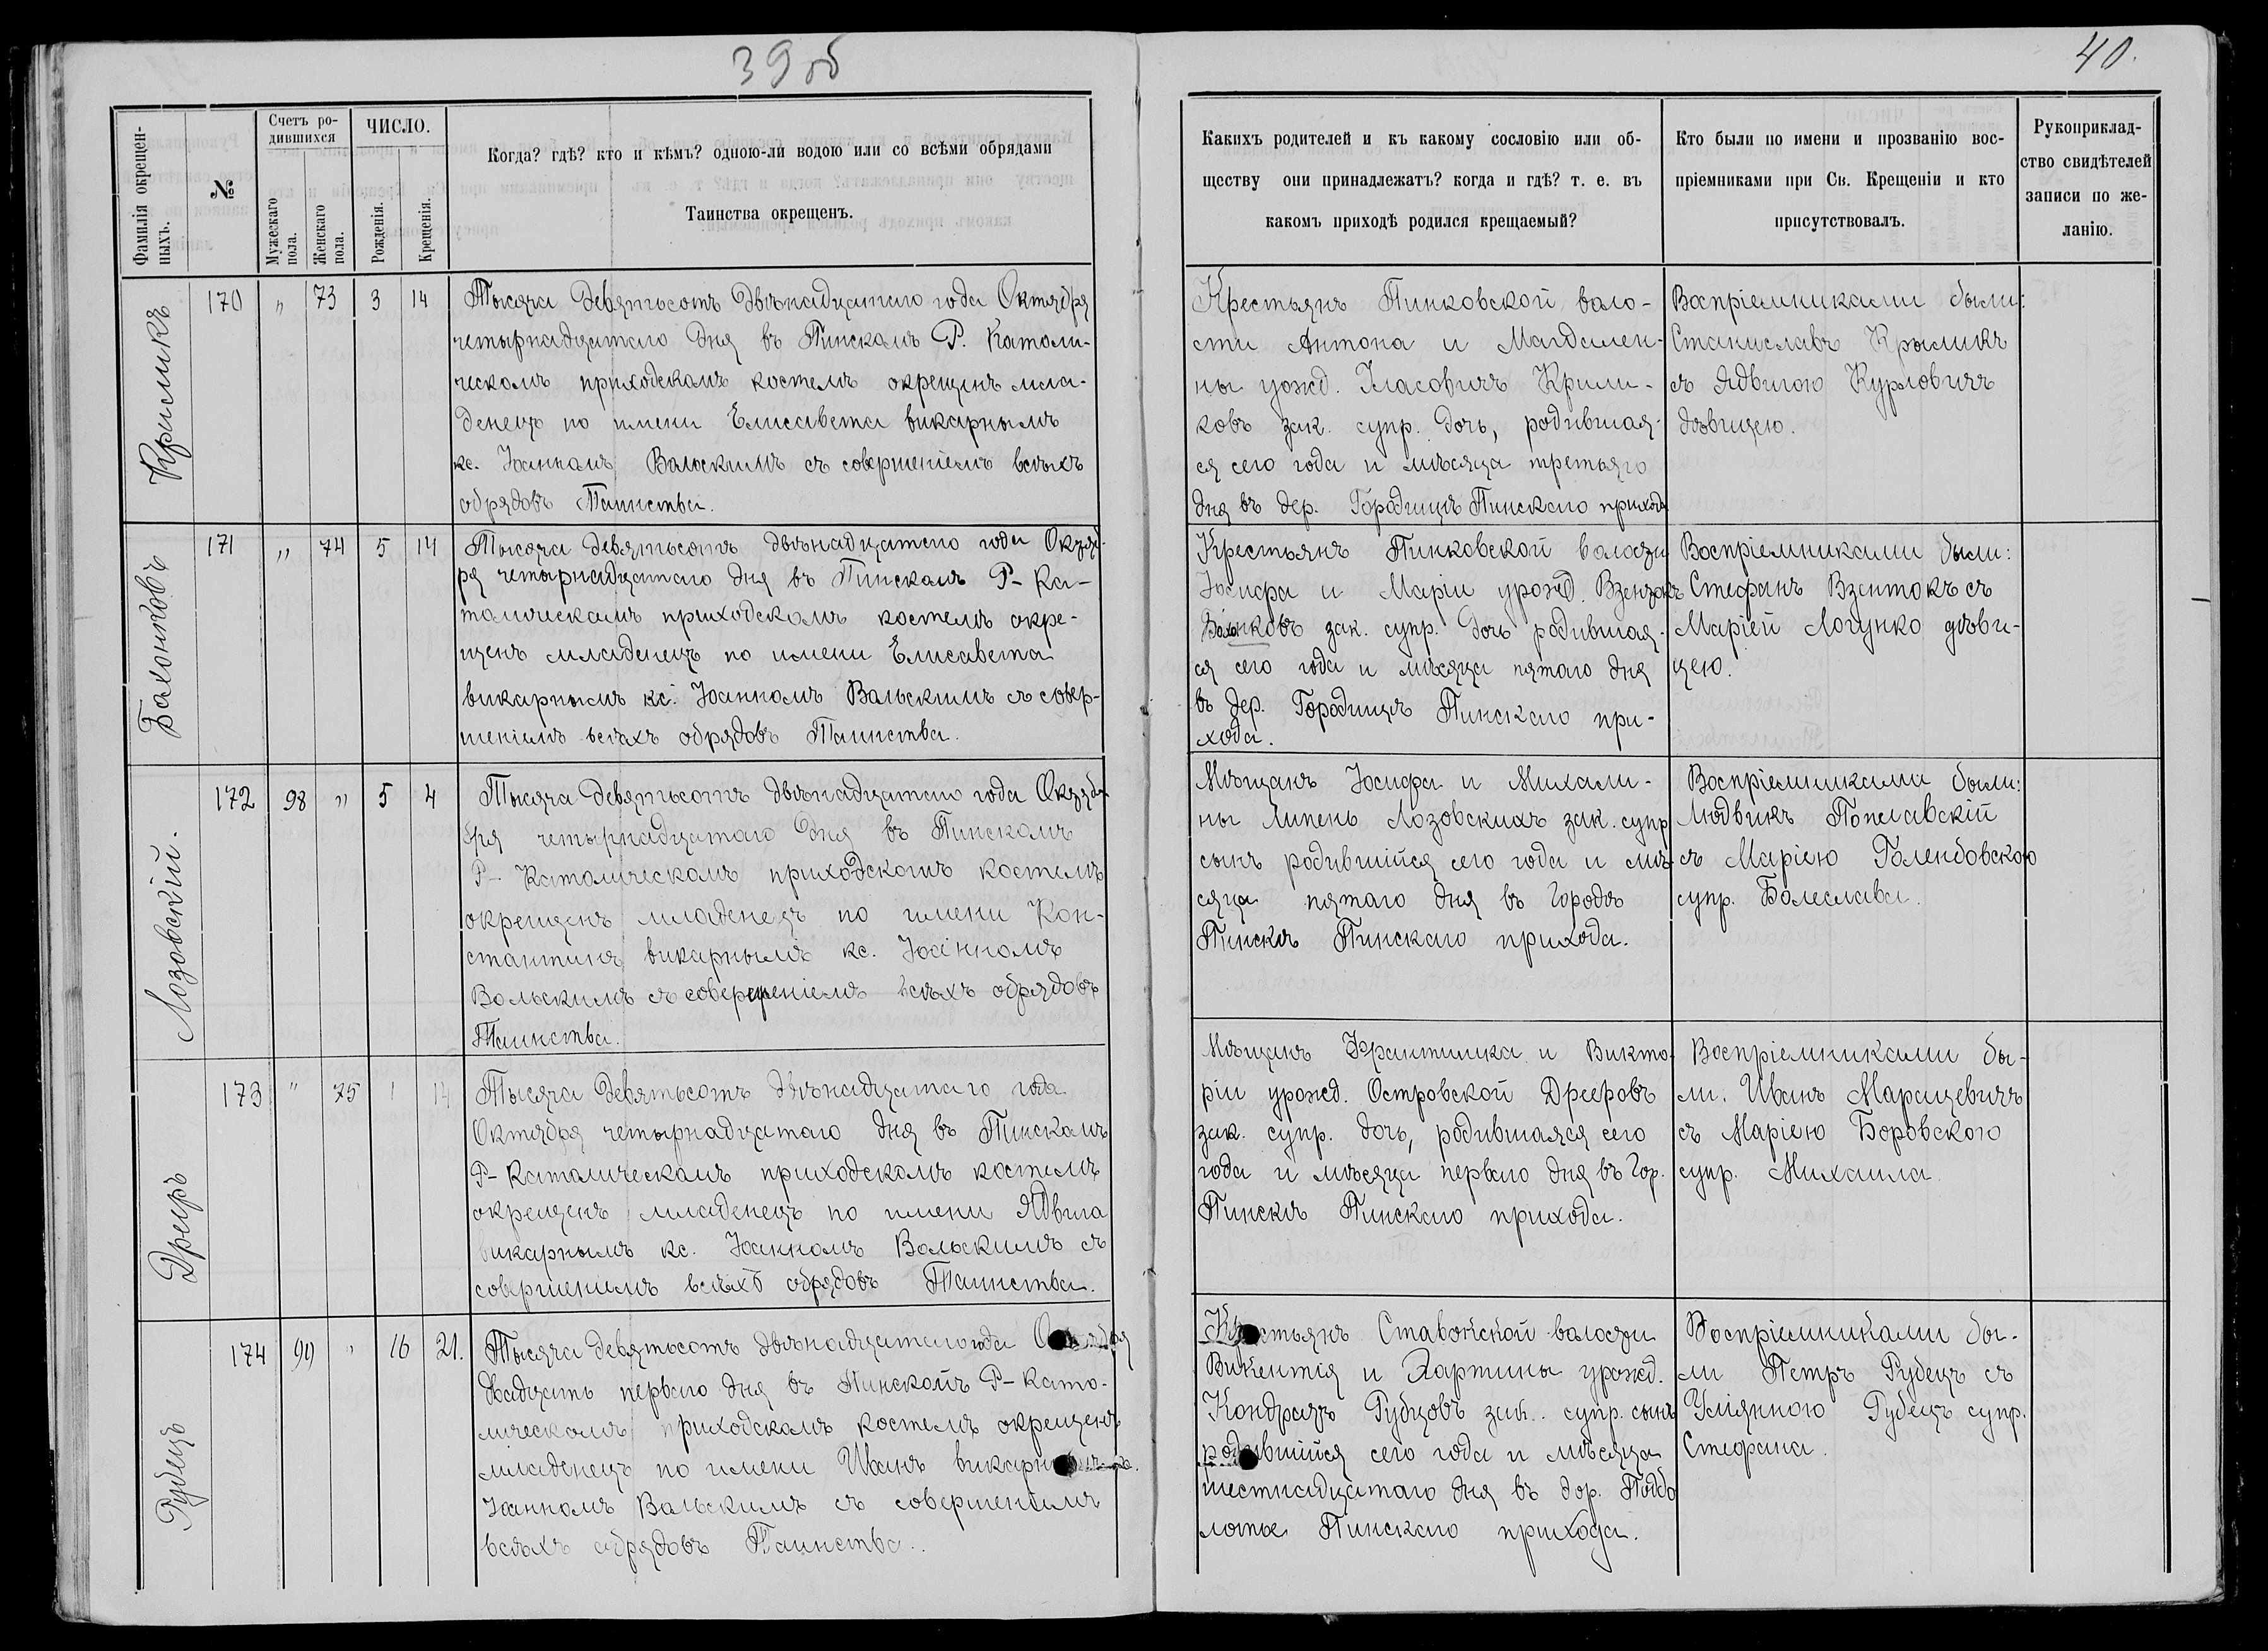 39 об
40.
Фамилія окрещен-
ныхъ.
№
Счетъ ро-
дившихся
Мужескаго
пола.
Женскаго
пола.
ЧИСЛО.
Рожденія.
Крещенія.
Когда? гдѣ? кто и кѣмъ? одною-ли водою или со всѣми обрядами
Таинства окрещенъ.
Какихъ родителей и къ какому сословію или об-
ществу они принадлежатъ? когда и гдѣ? т. е. въ
какомъ приходѣ родился крещаемый?
Кто были по имени и прозванію вос-
пріемниками при Св. Крещеніи и кто
присутствовалъ.
Рукоприклад-
ство свидѣтелей
записи по же-
ланію.
Крисликъ
170 " 73 3 14
Тысяча девятьсотъ двѣнадцатаго года Октября
четырнадцатаго дня въ Пинскомъ Р. Католи-
ческомъ приходскомъ костелѣ окрещенъ мла-
денецъ по имени Елисавета викарнымъ
кс. Іоанномъ Вольскимъ съ совершеніемъ всѣхъ
обрядовъ Таинства.
Крестьянъ Пинковской воло-
сти Антона и Магдален-
ны урожд. Гласовичъ Крыли-
ковъ зак. супр. дочь, родившая-
ся сего года и мѣсяца третьяго
дня въ дер. Городищѣ Пинскаго прихода
Воспріемниками были:
Станиславъ Крыликъ
съ Ядвигою Курловичъ
дѣвицею.
Бахонковъ
171 " 74 5 14
Тысяча девятьсотъ двѣнадцатаго года Октяб-
ря четырнадцатаго дня въ Пинскомъ Р-Ка-
толическомъ приходскомъ костелѣ окре-
щенъ младенецъ по имени Елисавета
викарнымъ кс. Іоанномъ Вольскимъ съ совер-
шеніемъ всѣхъ обрядовъ Таинства.
Крестьянъ Пинковской волости
Іосифа и Маріи урожд.
зак. супр. дочь родившая-
ся сего года и мѣсяца пятаго дня
въ дер. Городищѣ Пинскаго при-
хода.
Воспріемниками были:
Стефанъ Взентокъ съ
Маріей Логунко дѣви-
цею.
Лозовскій.
172 98 " 5 4
Тысяча девятьсотъ двѣнадцатаго года Октяб-
бря четырнадцатаго дня въ Пинскомъ
Р-Католическомъ приходскомъ костелѣ
окрещенъ младенецъ по имени Кон-
стантинъ викарнымъ кс. Іоанномъ
Вольскимъ съ совершеніемъ всѣхъ обрядовъ
Таинства.
Мѣщанъ Іосифа и Михали-
ны Липень Лозовскихъ зак. супр
сынъ родившійся сего года и мѣ-
сяца пятаго дня въ городѣ
Пинскѣ Пинскаго прихода.
Воспріемниками были:
Людвикъ Поплавскій
съ Маріею Голендовскою
супр. Болеслава.
Дрееръ
173 " 75 1 14
Тысяча девятьсотъ двѣнадцатаго года
Октября четырнадцатаго дня въ Пинскомъ
Р-Католическомъ приходскомъ костелѣ
окрещенъ младенецъ по имени Ядвига
викарнымъ кс. Іоанномъ Вольскимъ съ
совершеніемъ всѣхъ обрядовъ Таинства.
Мѣщанъ Франтишка и Викто-
ріи урожд. Островской Дрееровъ
зак. супр. дочь, родившаяся сего
года и мѣсяца перваго дня въ гор.
Пинскѣ Пинскаго прихода.
Воспріемниками бы-
ли: Иванъ Марцевичъ
съ Маріею Боровскою
супр. Михаила
Рубецъ
174 99 " 16 21.
Тысяча девятьсотъ двѣнадцатаго года Октября
двадцать перваго дня въ Пинскомъ Р-Като-
лическомъ приходскомъ костелѣ окрещенъ
младенецъ по имени Иванъ викарнымъ кс.
Іоанномъ Вольскимъ съ совершеніемъ
всѣхъ обрядовъ Таинства.
Крестьянъ Ставокской волости
Викентія и урожд.
Кондрацъ Рубцовъ зак. супр. сынъ
родившійся сего года и мѣсяца
шестнадцатаго дня въ дер. Поддо
лотье Пинскаго прихода.
Воспріемниками бы-
ли Петръ Рубецъ съ
Ульянною Рубецъ супр.
Стефана.